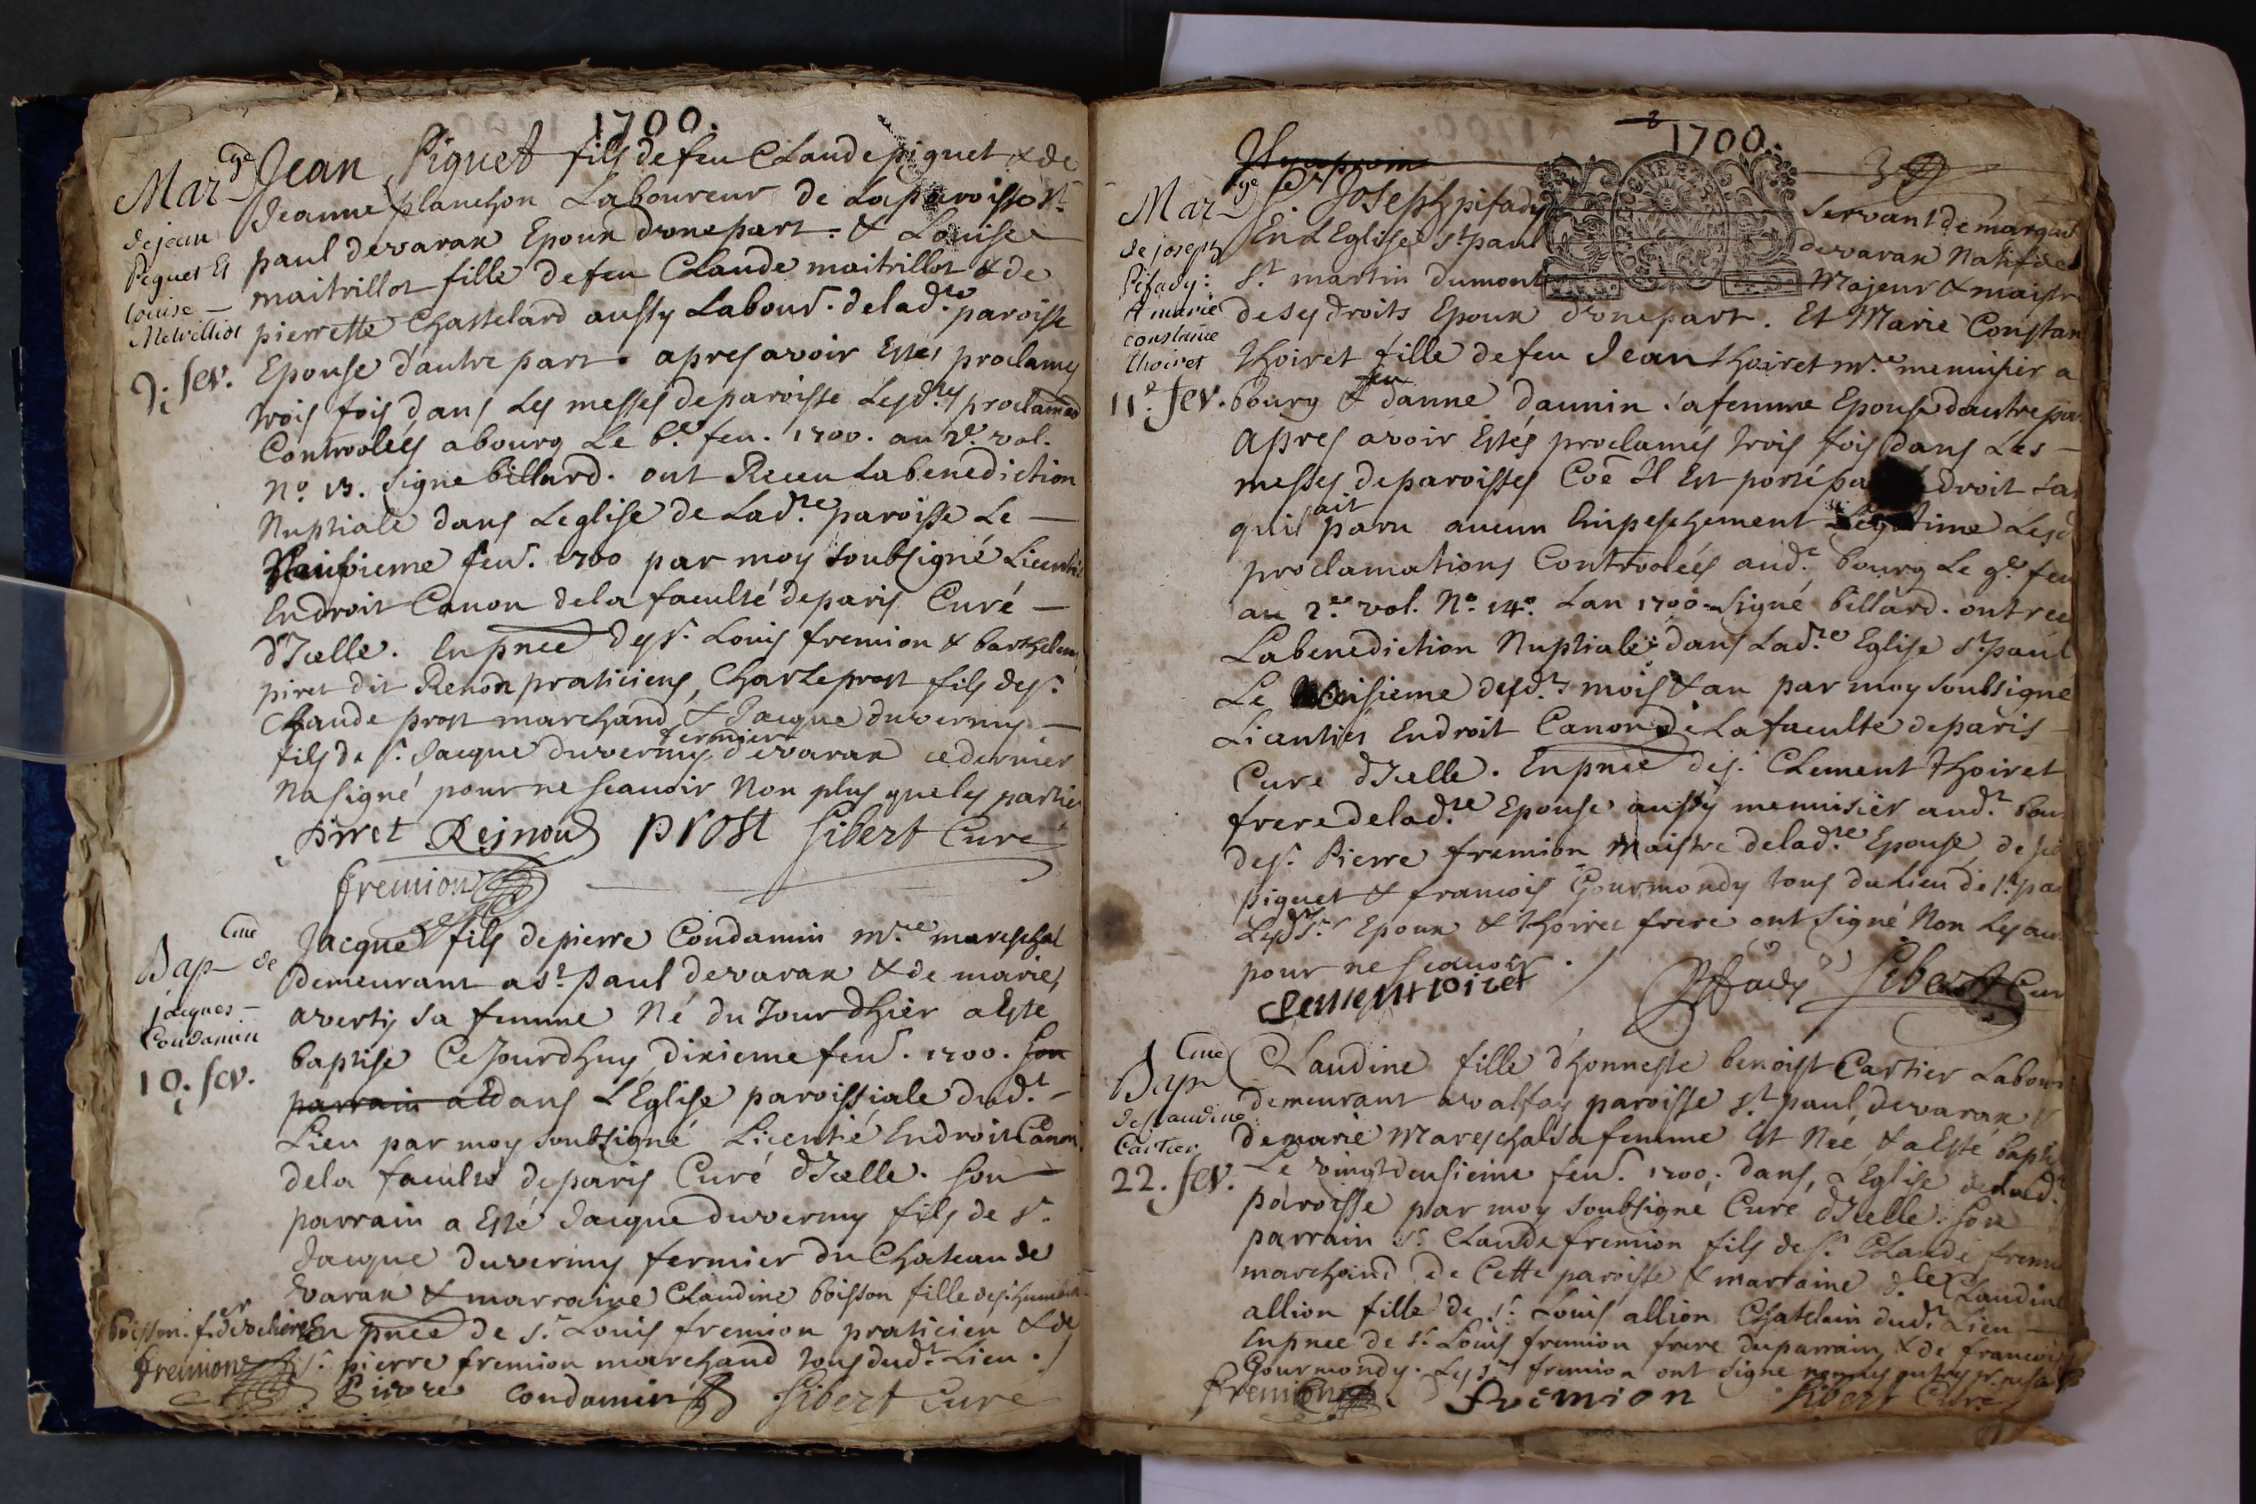 1700.
Mar.ge
de jean
Piguet Et
louise
Metrilliot
9. fev.
Jean Piguet fils de feu Claude piguet & de
Jeanne planchon Laboureur de La paroisse st.
paul de varax Epoux d'une part. & Louise
maitrillot fille de feu Claude maitrillot & de
pierrette Chastelard aussy Labour. de lad.te paroisse
Epouse d'autre part. apres avoir Estés proclamés
trois fois dans Les messes de paroisse Lesd.tes proclama.
Controolées a bourg Le 6.e feu. 1700. au 2.e vol.
N.o 13. signe billard. ont Receu La benediction
Nuptiale dans Leglise de Lad.te paroisse Le
Neufvieme feu. 1700 par moy soubsigné Licentié
En droit Canon de la faculté de paris Curé
d'Jcelle. En pnce des s.r Louis fremion & barthelemy
piret dit Renon praticiens, Charle prost fils de s.r
Claude prost marchand & Jacque duverny
fils de s.r Jacque duverny fermier de varax ce dernier
Na signé pour ne scauoir Non plus que les parties
Pirret Rejnoud prost Sibert Curé
fremion
Bap.me de
jacques
Condamin
10. fev.
Jacque fils de pierre Condamin m.re mareschal
demeurant a st. paul de varax & de marie
averty sa femme Né du Jour dhier a Este
baptise Ce Jourdhuy dixieme feu. 1700. son
parrain a Et dans L'Eglise paroissiale dud.t
Lieu par moy soubsigné Licentié En droit Canon
de la faculté de paris Curé d'Jcelle. son
parrain a Esté Jacque duverny fils de s.r
Jacque duverny fermier du Chateau de
Varax & marraine Claudine boisson fille de s. humbert
boisson. f.er de voliere En pnce de s.r Louis fremion praticien & de
s.r pierre fremion marchand tous dud.t Lieu.
fremion Pierre condamin Sibert Cure
1700.
3
Mar.ge
de joseph
Pifady:
& marie
constance
thoiret
11.e fev.
s.r Joseph pifady servant de marquis
En LEglise st. paul de varax Natif de
st. martin dumont Majeur & maistre
de sy droits Epoux d'une part. Et Marie Constan
thoiret fille de feu Jean thoiret m.re menuisier a
bourg & feu danne daunin sa femme Epouse d'autre par
apres avoir Estés proclamés trois fois dans Les
messes de paroisses Coe Il Est porté pa droit sa
quil ait paru aucun Empeschement Legitime Lesd
proclamations Controolées aud.t bourg Le 9.e feu
au 2.e vol. N.o 14.o Lan 1700. signé billard. ont rec
La benediction Nuptiale dans Lad.te Eglise st. paul
Le onsieme desd.ts mois & an par moy soubsigné
Licentiés En droit Canon de La faculté de paris
Cure d'Jcelle. En pnce de s. Clement thoiret
frere de lad.te Epouse aussy menuisier aud.t bou
de s.r Pierre fremion maistre de lad.te Epouse, de
piguet & francois Gourmondy tous du Lieu de st. pa
Lesd.ts s.rs Epoux & thoiret frere ont signé Non Les au
pour ne scauoir.
Clement toiret Pifady Sibert Cur
Bap.me
de Claudine
Cartier
22. fev.
Claudine fille d'honneste benoist Cartier Labour
demeurant a valfay paroisse st. paul de varax &
de marie mareschal sa femme Est Née, & a Esté bapt
Le vingtdeusieme feu. 1700. dans, L'Eglise de lad.
paroisse par moy soubsigné Curé d'Jcelle. son
parrain s.r Claude fremion fils de s.r Claude fremi
marchand de Cette paroisse & marraine d.le Claudine
allion fille de s.r Louis allion Chatelain dud.t Lieu
En pnce de s.r Louis fremion frere du parrain & de francois
Gourmondy. Les s.rs fremion ont signe
fremion fremion Sibert Cure